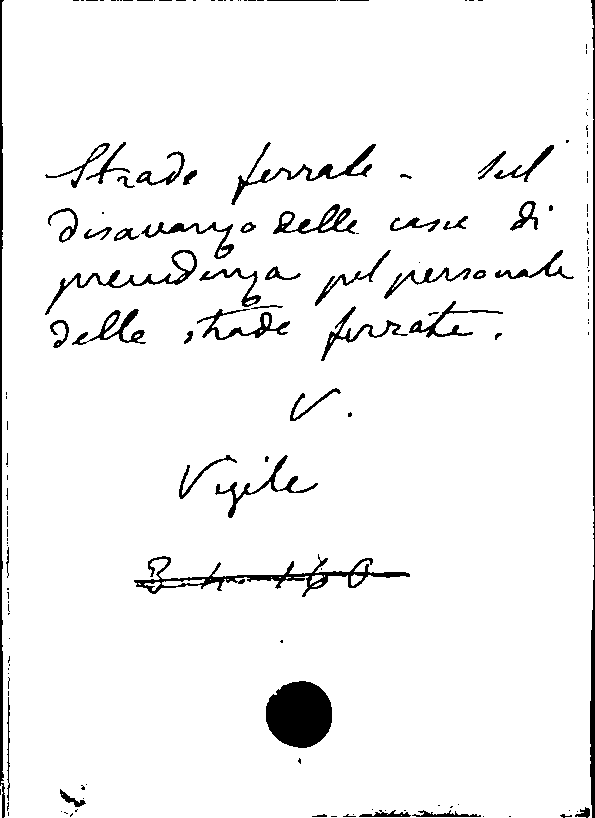 Strade ferrate - Sul
disavanzo delle casse di
previdenza pel personale
delle strade ferrate.
V.
Vigile